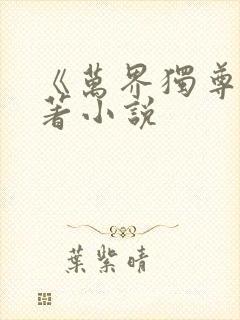 《萬界獨尊
著小説
葉紫晴